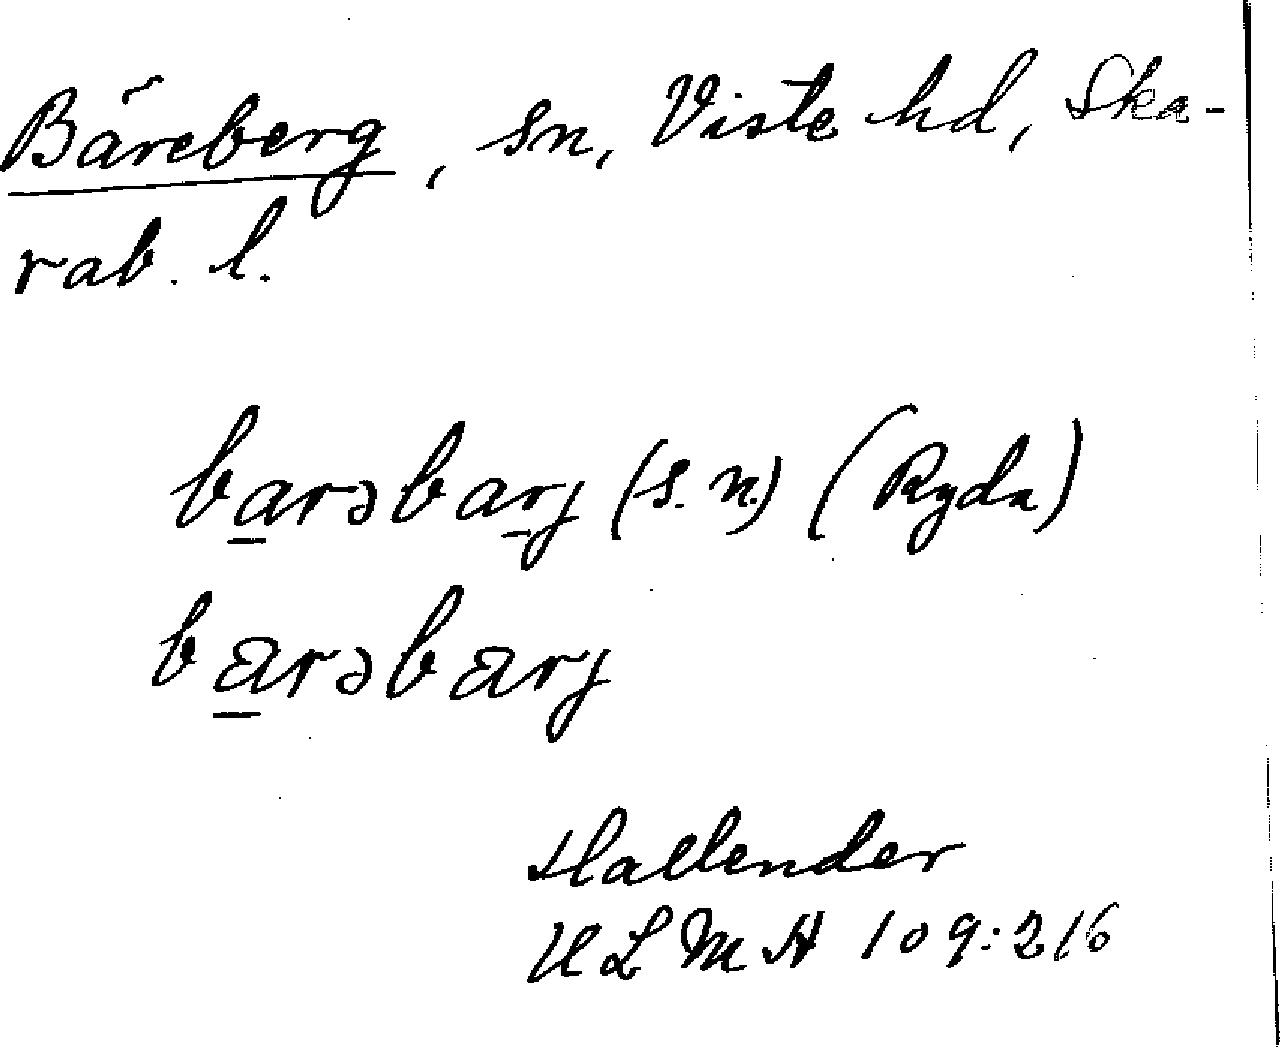 Bäreberg, sn, Viste hd, Ska-
rab. l.
barəbarj (s. n.) (Ryda)
barəbarj
Hallender
ULMA 109:216